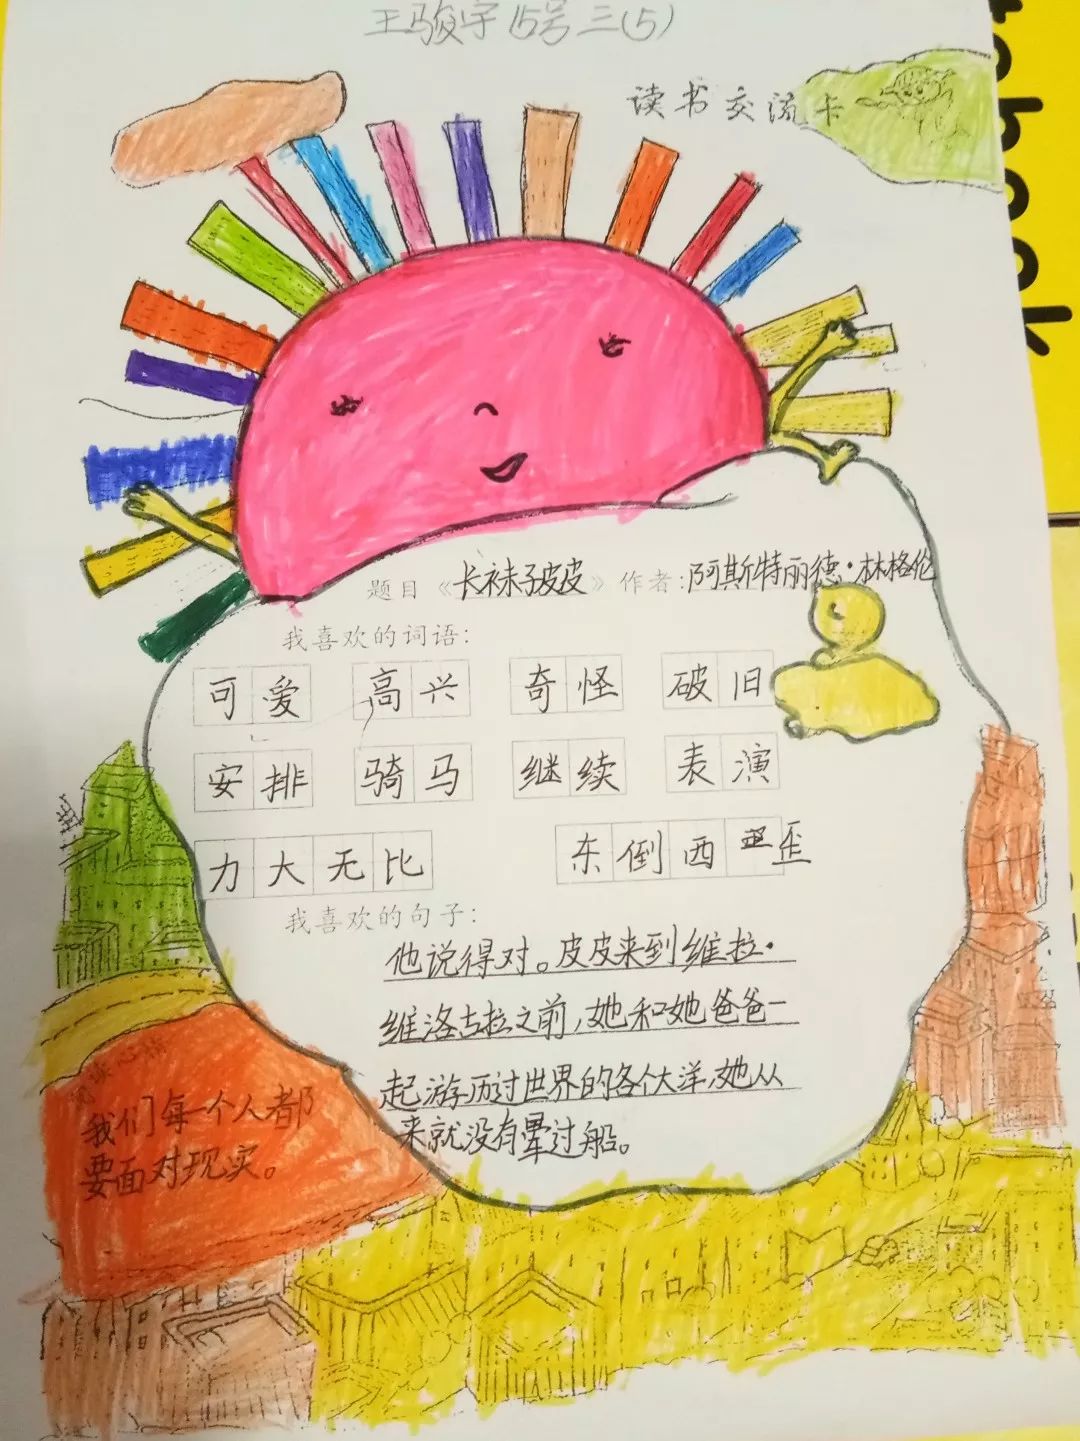 王骏宇15号三(5)
读书交流卡
题目《长袜子皮皮》作者:阿斯特丽德·林格伦
我喜欢的词语:
可爱 高兴 奇怪 破旧
安排 骑马 继续 表演
力大无比 东倒西歪
我喜欢的句子:
他说得对。皮皮来到维拉·
维洛古拉之前,她和她爸爸一
起游历过世界的各个大洋,她从
来就没有晕过船。
我们每一个人都
要面对现实。